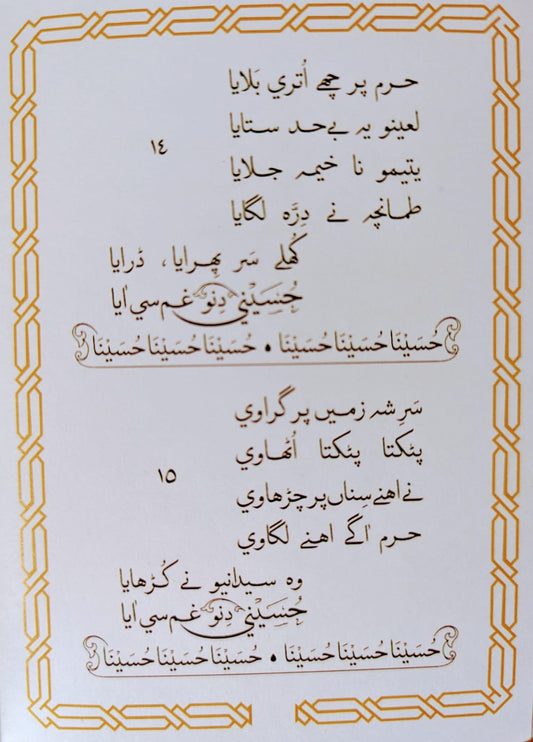 حرم پر چھے اُتري بَلايا
لعينو يہ بےحد ستايا
١٤
يتيمو نا خيمہ جلايا
طمانچہ نے دِرَّہ لگايا
کُھلے سَر پِھرايا، ڈرايا
حُسَيْني دِنو غم سي اٰيا
حُسَيْنَا حُسَيْنَا حُسَيْنَا • حُسَيْنَا حُسَيْنَا حُسَيْنَا
سَرِ شہ زميں پر گراوي
پٹکتا پٹکتا اُٹھاوي
١٥
نے اهنے سِناں پر چڑھاوي
حرم اٰگے اهنے لگاوي
وہ سيدانيو نے کُڑھايا
حُسَيْني دِنو غم سي اٰيا
حُسَيْنَا حُسَيْنَا حُسَيْنَا • حُسَيْنَا حُسَيْنَا حُسَيْنَا